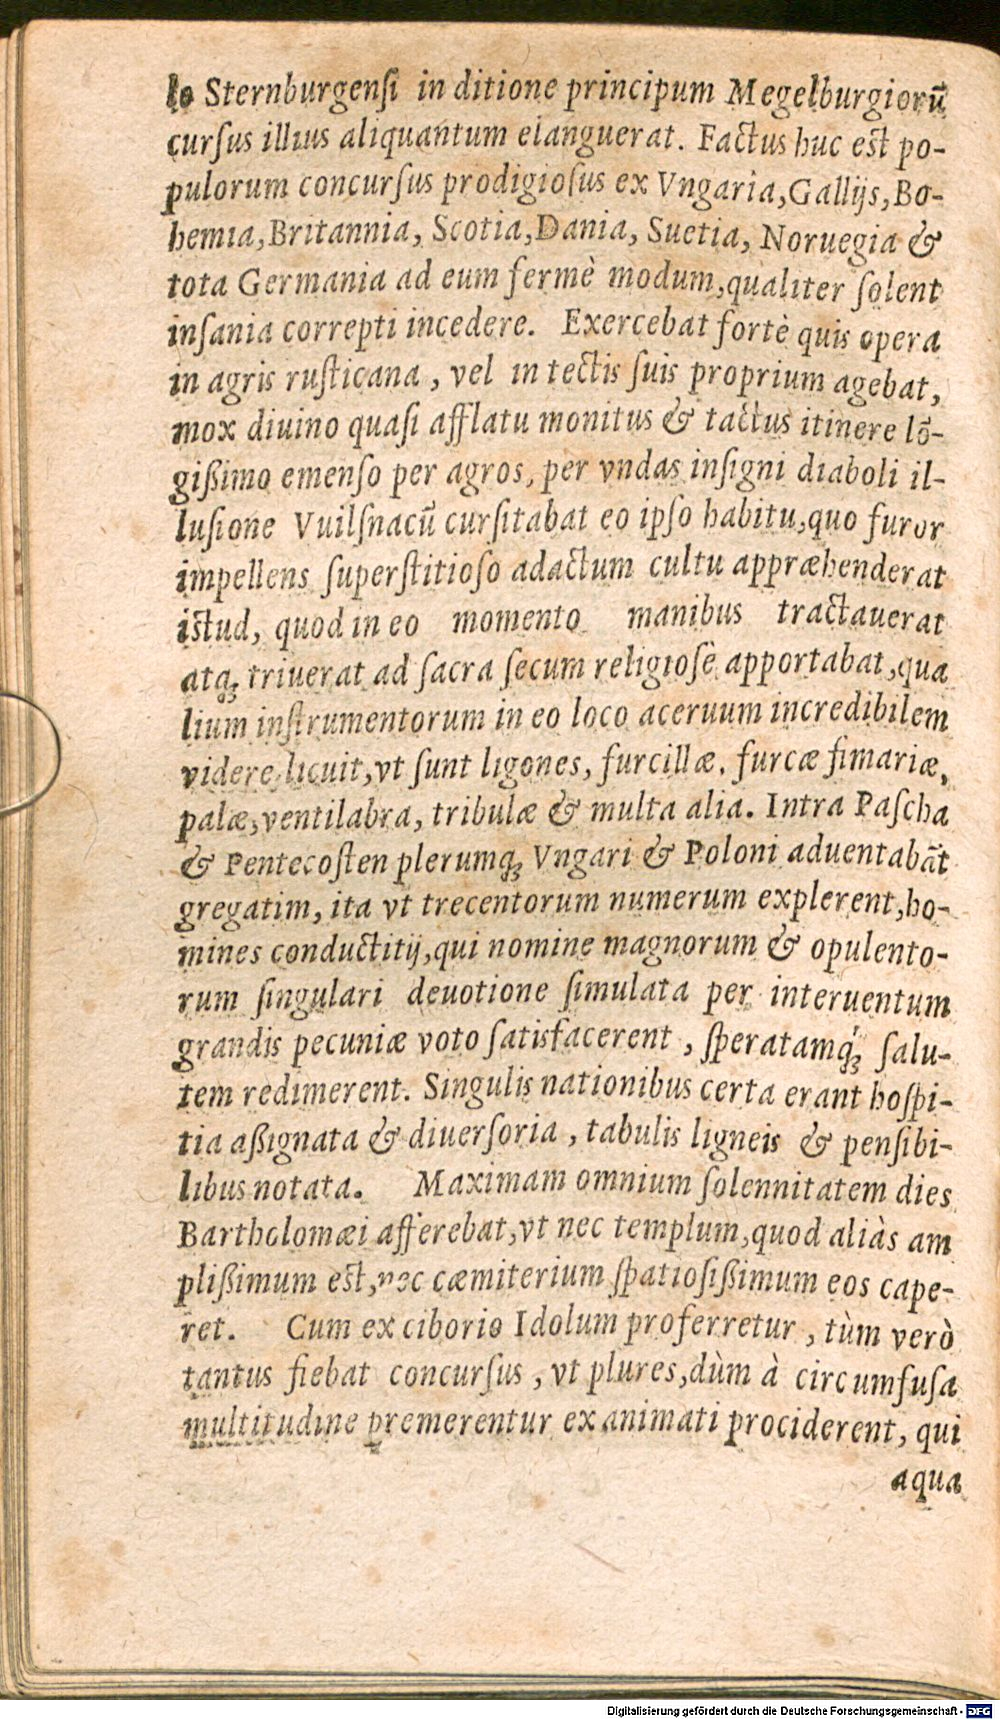 lo Sternburgensi in ditione principum Megelburgiorū
cursus illius aliquantum elanguerat. Factus huc est po-
pulorum concursus prodigiosus ex Vngaria, Gallijs, Bo-
hemia, Britannia, Scotia, Dania, Suetia, Noruegia &
tota Germania ad eum fermè modum, qualiter solent
insania correpti incedere. Exercebat fortè quis opera
in agris rusticana, vel in tectis suis proprium agebat,
mox diuino quasi afflatu monitus & tactus itinere lō-
gißimo emenso per agros, per vndas insigni diaboli il-
lusione Vuilsnacū cursitabat eo ipso habitu, quo furor
impellens superstitioso adactum cultu appræhenderat
istud, quod in eo momento manibus tractauerat
atq; triuerat ad sacra secum religiosè apportabat, qua
lium instrumentorum in eo loco aceruum incredibilem
videre licuit, vt sunt ligones, furcillæ, furcæ fimariæ,
palæ, ventilabra, tribulæ & multa alia. Intra Pascha
& Pentecosten plerumq; Vngari & Poloni aduentabāt
gregatim, ita vt trecentorum numerum explerent, ho-
mines conductitij, qui nomine magnorum & opulento-
rum singulari deuotione simulata per interuentum
grandis pecuniæ voto satisfacerent, speratamq́; salu-
tem redimerent. Singulis nationibus certa erant hospi-
tia aßignata & diuersoria, tabulis ligneis & pensibi-
libus notata. Maximam omnium solennitatem dies
Bartholomæi afferebat, vt nec templum, quod aliàs am
plißimum est, nec cæmiterium spatiosißimum eos cape-
ret. Cum ex ciborio Idolum proferretur, tùm verò
tantus fiebat concursus, vt plures, dùm à circumfusa
multitudine premerentur exanimati prociderent, qui
aqua
Digitalisierung gefördert durch die Deutsche Forschungsgemeinschaft - DFG